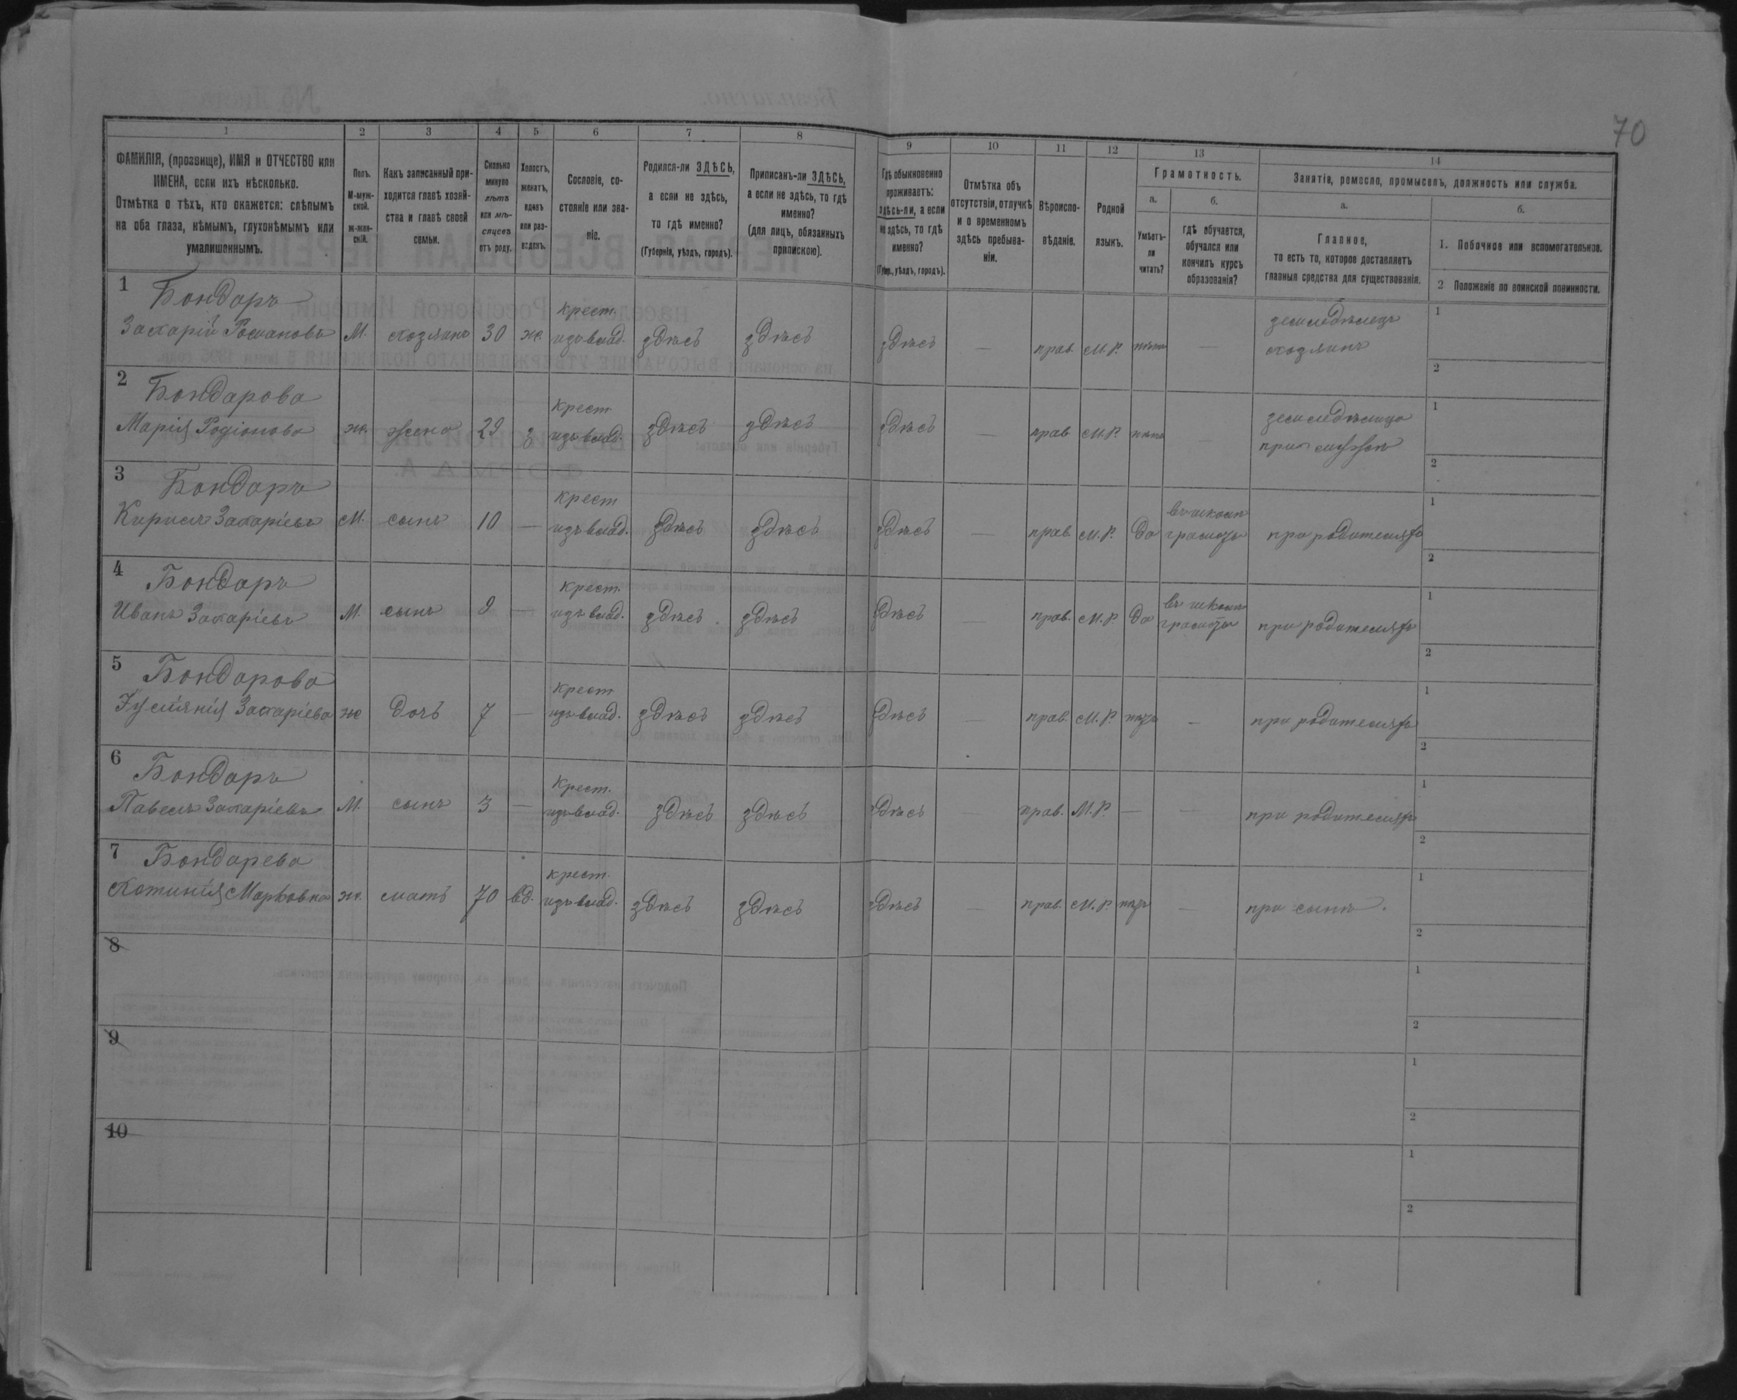 70
1 2 3 4 5 6 7 8 9 10 11 12 13 14
ФАМИЛІЯ, (прозвище), ИМЯ и ОТЧЕСТВО или
ИМЕНА, если ихъ нѣсколько.
Отмѣтка о тѣхъ, кто окажется: слѣпымъ
на оба глаза, нѣмымъ, глухонѣмымъ или
умалишеннымъ.
Полъ.
М-муж-
ской.
ж-жен-
скій.
Какъ записанный при-
ходится главѣ хозяй-
ства и главѣ своей
семьи.
Сколько
минуло
лѣтъ
или мѣ-
сяцевъ
отъ роду.
Холостъ,
женатъ,
вдовъ
или раз-
веденъ.
Сословіе, со-
стояніе или зва-
ніе.
Родился-ли ЗДѢСЬ,
а если не здѣсь,
то гдѣ именно?
(Губернія, уѣздъ, городъ).
Приписанъ-ли ЗДѢСЬ,
а если не здѣсь, то гдѣ
именно?
(для лицъ, обязанныхъ
припискою).
Гдѣ обыкновенно
проживаетъ:
здѣсь-ли, а если
не здѣсь, то гдѣ
именно?
(Губ., уѣздъ, городъ).
Отмѣтка объ
отсутствіи, отлучкѣ
и о временномъ
здѣсь пребыва-
ніи.
Вѣроиспо-
вѣданіе.
Родной
языкъ.
Грамотность.
а.
Умѣетъ-
ли
читать?
б.
гдѣ обучается,
обучался или
кончилъ курсъ
образованія?
Занятіе, ремесло, промыселъ, должность или служба.
а.
Главное,
то есть то, которое доставляетъ
главныя средства для существованія.
б.
1. Побочное или вспомогательное.
2 Положеніе по воинской повинности.
1 Бондаръ
Захарій Романовъ М. хозяинъ 30 ж. крест. изъ влад. здѣсь здѣсь здѣсь — прав. М.Р. нѣтъ — земледѣлецъ хозяинъ 1 2
2 Бондарова
Марія Родіонова ж. жена 29 з. крест. изъ влад. здѣсь здѣсь здѣсь — прав. М.Р. нѣтъ — земледѣлица при мужѣ 1 2
3 Бондаръ
Кирилъ Захаріевъ М. сынъ 10 — крест. изъ влад. здѣсь здѣсь здѣсь — прав. М.Р. да въ школѣ грамоты при родителяхъ 1 2
4 Бондаръ
Иванъ Захаріевъ М. сынъ 9 — крест. изъ влад. здѣсь здѣсь здѣсь прав. М.Р. да въ школѣ грамоты при родителяхъ 1 2
5 Бондарова
Іуліянія Захаріева ж дочь 7 — крест. изъ влад. здѣсь здѣсь здѣсь — прав. М.Р. нѣтъ — при родителяхъ 1 2
6 Бондаръ
Павелъ Захаріевъ М. сынъ 3 — крест. изъ влад. здѣсь здѣсь здѣсь — прав. М.Р. — — при родителяхъ 1 2
7 Бондарева
Марковна ж. мать 70 вд. крест. изъ влад. здѣсь здѣсь здѣсь — прав. М.Р. нѣтъ — при сынѣ. 1 2
8 1 2
9 1 2
10 1 2